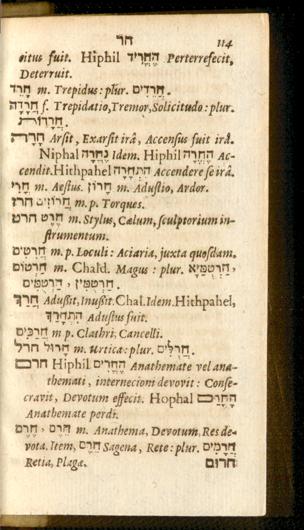 חר 114
oitus fuit. Hiphil הֶחֱרִיד Perterrefecit,
Deterruit.
חָרֵד m. Trepidus: plur. חֲרֵדִים.
חֲרָדָה f. Trepidatio, Tremor, Solicitudo: plur.
חֲרָדוֹת.
חָרָה Arsit, Exarsit irâ, Accensus fuit irâ.
Niphal נֶחֱרָה Idem. Hiphil הֶחֱרָה Ac-
cendit. Hithpahel הִתְחָרָה Accendere se irâ.
חֳרִי m. Aestus. חָרוֹן m. Adustio, Ardor.
חרז חֲרוּזִים m. p. Torques.
חרט חֶרֶט m. Stylus, Cælum, sculptorium in-
strumentum.
חֲרִטִים m. p. Loculi: Aciaria, juxta quosdam.
חַרְטוֹם m. Chald. Magus: plur. חַרְטֻמַּיָּא,
חַרְטֻמִּין, חַרְטֻמִּים.
חָרַךְ Adußit, Inußit. Chal. Idem. Hithpahel,
הִתְחָרַךְ Adustus fuit.
חֲרַכִּים m p. Clathri, Cancelli.
חרל חָרוּל m. Urtica: plur. חֲרֻלִּים.
חרם Hiphil הֶחֱרִים Anathemate vel ana-
themati, internecioni devovit: Conse-
cravit, Devotum effecit. Hophal הָחֳרַם
Anathemate perdi.
חֵרֶם, חֶרֶם m. Anathema, Devotum, Res de-
vota. Item, חֵרֶם Sagena, Rete: plur. חֲרָמִים
Retia, Plagæ. חרום